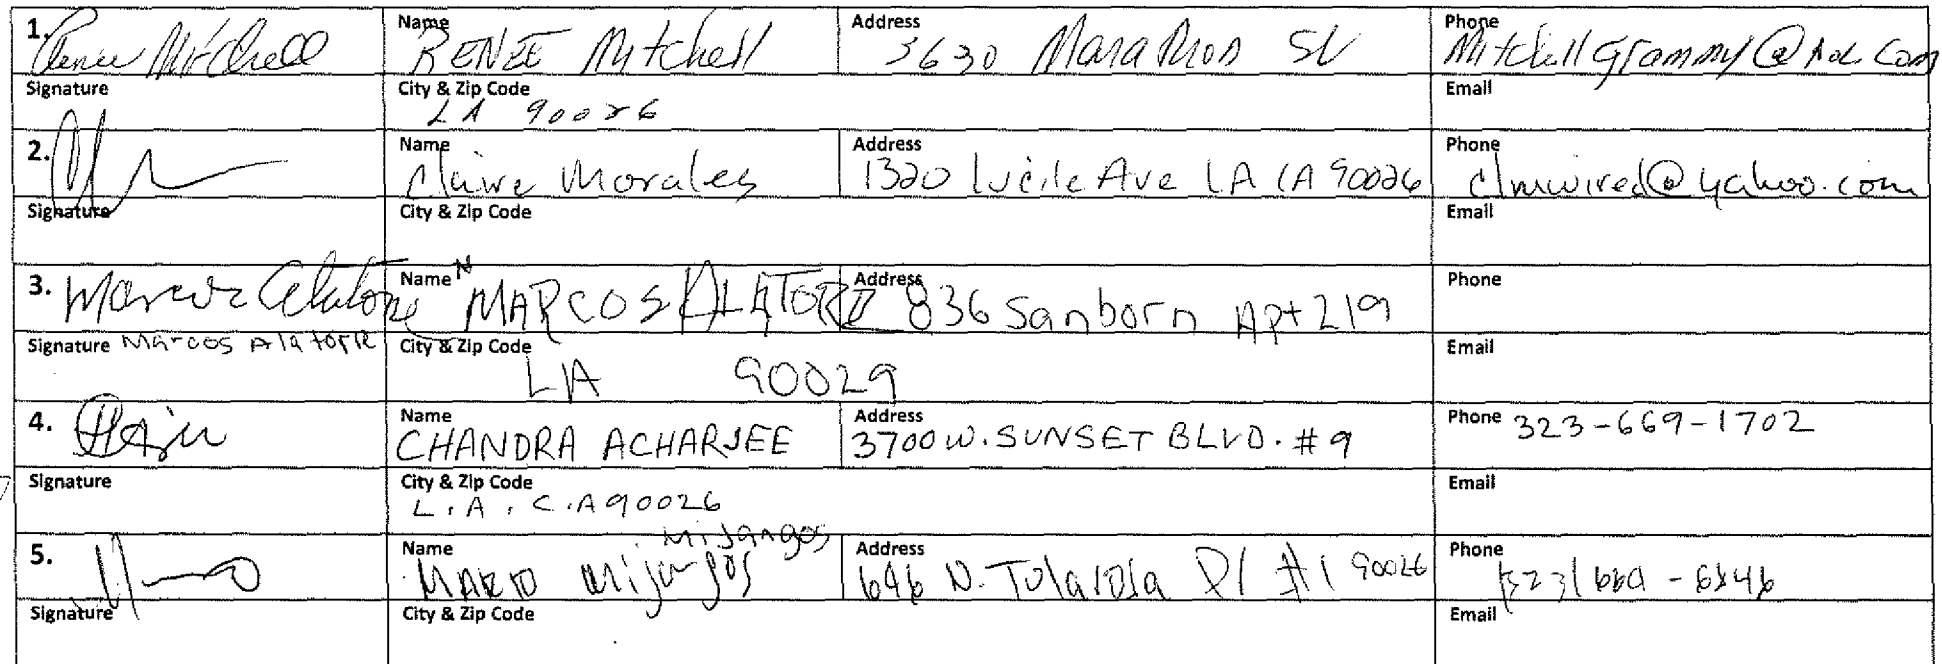 1. Renee Mitchell Name RENEE Mitchell Address 3630 Marathon St Phone MitchellGrammy@Aol.Com
Signature City & Zip Code LA 90026 Email
2. Name Claire Morales Address 1320 Lucile Ave LA CA 90026 Phone clmwired@yahoo.com
Signature City & Zip Code Email
3. Marcos Alatorre Name MARCOS ALATORRE Address 836 Sanborn Apt 219 Phone
Signature Marcos Alatorre City & Zip Code LA 90029 Email
4. Name CHANDRA ACHARJEE Address 3700 W. SUNSET BLVD. #9 Phone 323-669-1702
Signature City & Zip Code L.A. C.A 90026 Email
5. Name MARIO Mijangos Mijangos Address 646 N. Tularosa Pl #1 90026 Phone
Signature City & Zip Code Email